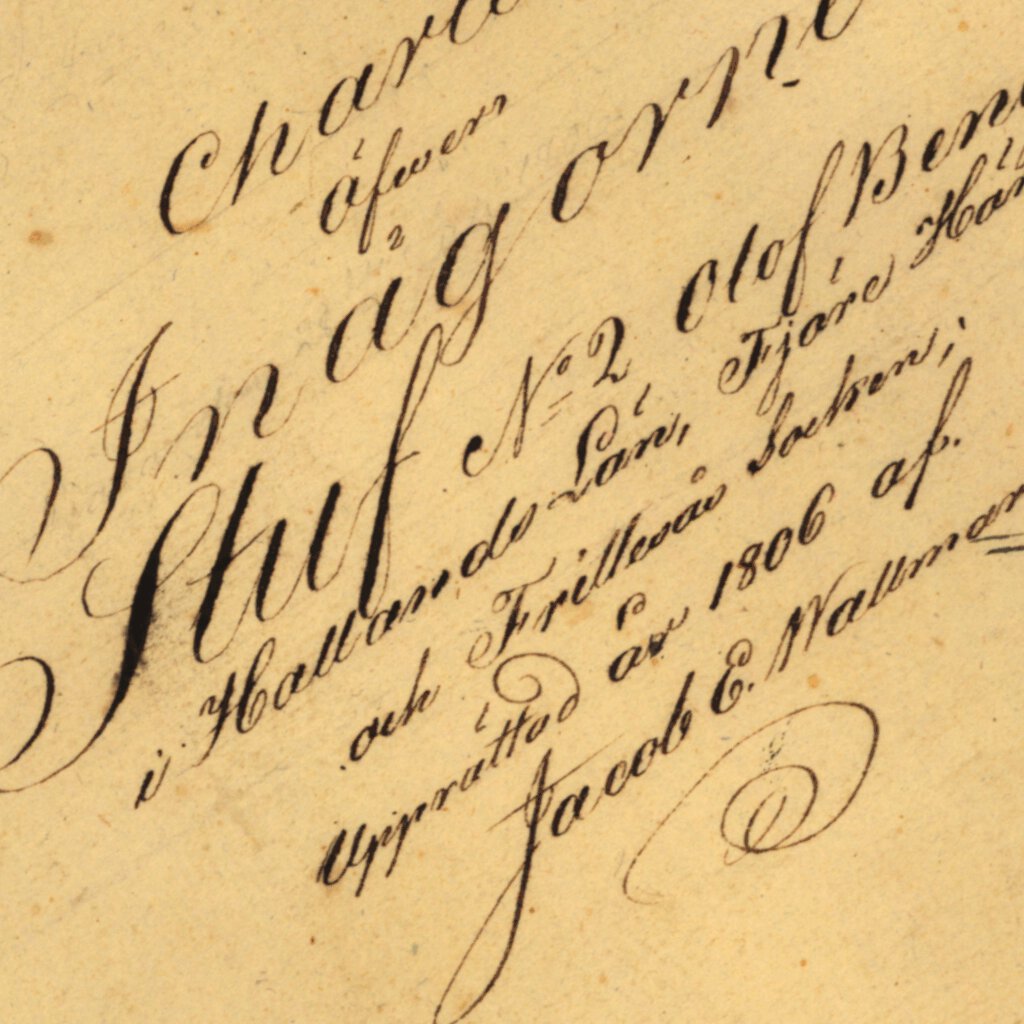 Chara
öfver
Inägorne
Stuf No 2 Olof Ben
i Hallands Län, Fjäre Här
och Frillesås Socken;
Upprättad år 1806 af.
Jacob E. Wallman